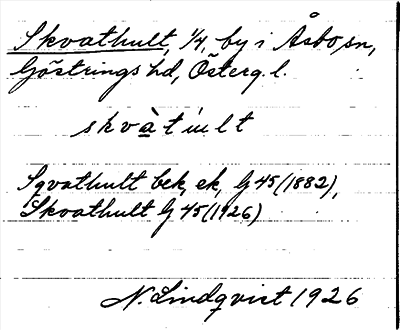 Skvathult, 1/4, by i Åsbo sn,
Göstrings hd, Österg. l.
skvàtùlt
Sqvathult bek, ek, G 45 (1882),
Skvathult G 45 (1926)
N. Lindqvist 1926